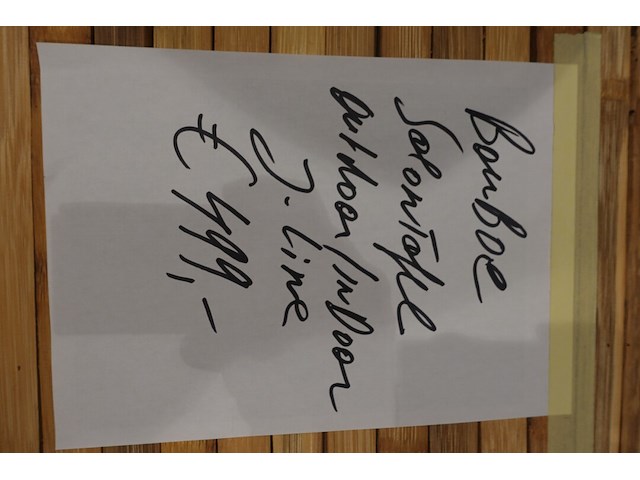 BamBoe
SalonTafel
Outdoor/InDoor
J-Line
€ 499,-